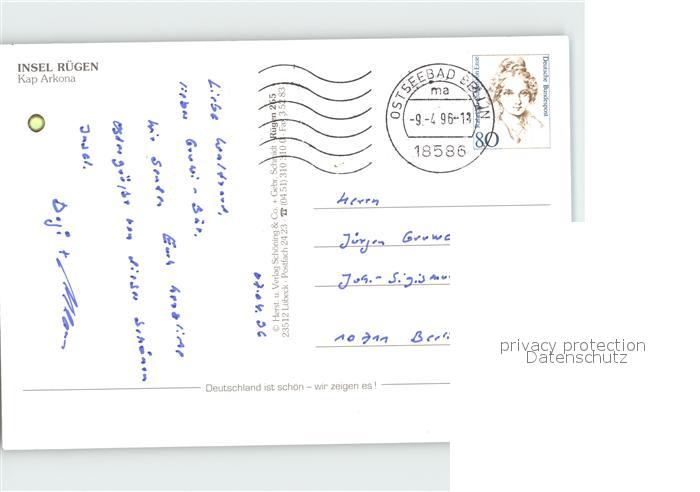 INSEL RÜGEN
Kap Arkona
07.04.96
Liebe Waltraud,
lieber Gruwi-Bär.
Wir senden Euch herzliche
Ostergrüße von dieser schönen
Insel.
© Herst. u. Verlag Schöning & Co. + Gebr. Schmidt Rügen 265
23512 Lübeck · Postfach 24 23 · ☎ (04 51) 310 310 Fax 3 52 83
OSTSEEBAD
ma
-9.-4.96-18
18586
Deutsche Bundespost
80
Herrn
Jürgen
Joh.-Sigismu
10711 Berli
Deutschland ist schön – wir zeigen es !
privacy protection
Datenschutz